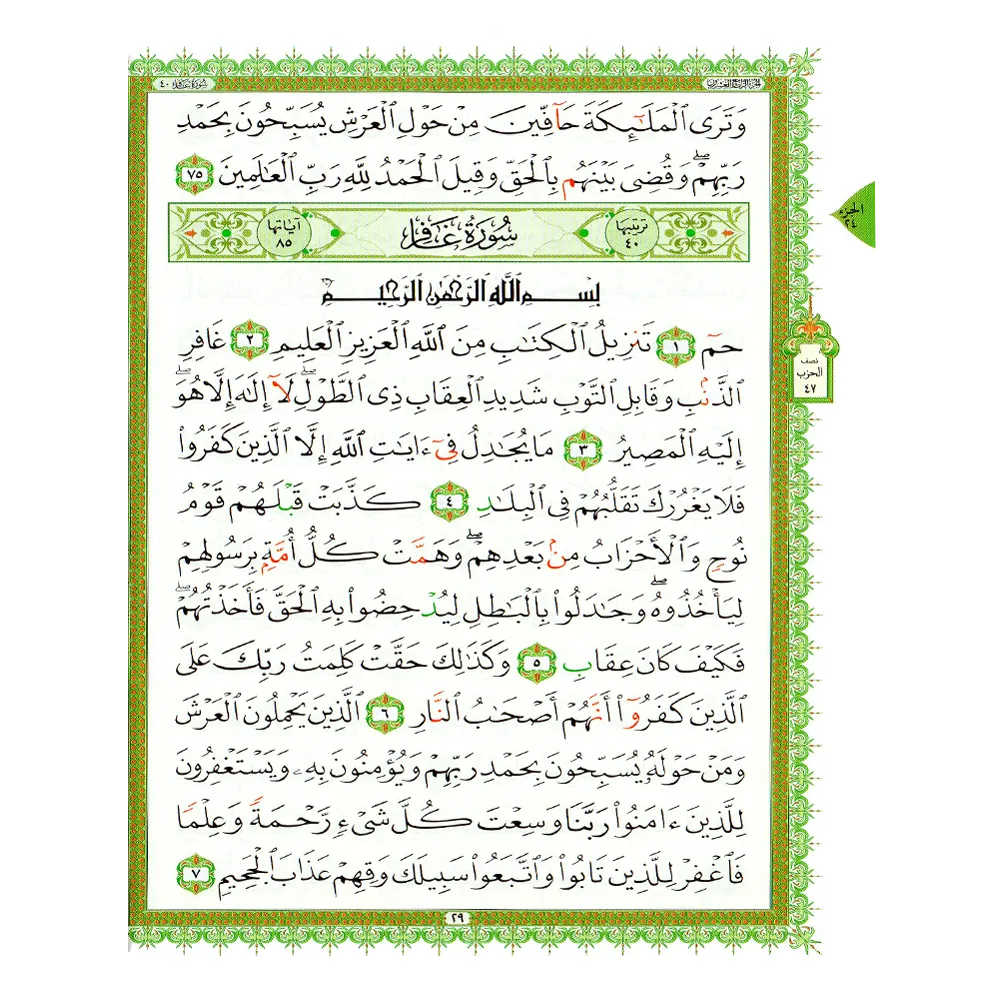 الجزء الرابع والعشرون
سورة غافر ٤٠
وَتَرَى ٱلْمَلَـٰٓئِكَةَ حَآفِّينَ مِنْ حَوْلِ ٱلْعَرْشِ يُسَبِّحُونَ بِحَمْدِ
رَبِّهِمْ ۖ وَقُضِىَ بَيْنَهُم بِٱلْحَقِّ وَقِيلَ ٱلْحَمْدُ لِلَّهِ رَبِّ ٱلْعَـٰلَمِينَ ٧٥
ترتيبها ٤٠ سُورَةُ غَافِرٍ آياتها ٨٥
بِسْمِ ٱللَّهِ ٱلرَّحْمَـٰنِ ٱلرَّحِيمِ
حمٓ ١ تَنزِيلُ ٱلْكِتَـٰبِ مِنَ ٱللَّهِ ٱلْعَزِيزِ ٱلْعَلِيمِ ٢ غَافِرِ
ٱلذَّنۢبِ وَقَابِلِ ٱلتَّوْبِ شَدِيدِ ٱلْعِقَابِ ذِى ٱلطَّوْلِ ۖ لَآ إِلَـٰهَ إِلَّا هُوَ ۖ
إِلَيْهِ ٱلْمَصِيرُ ٣ مَا يُجَـٰدِلُ فِىٓ ءَايَـٰتِ ٱللَّهِ إِلَّا ٱلَّذِينَ كَفَرُوا۟
فَلَا يَغْرُرْكَ تَقَلُّبُهُمْ فِى ٱلْبِلَـٰدِ ٤ كَذَّبَتْ قَبْلَهُمْ قَوْمُ
نُوحٍ وَٱلْأَحْزَابُ مِنۢ بَعْدِهِمْ ۖ وَهَمَّتْ كُلُّ أُمَّةٍۭ بِرَسُولِهِمْ
لِيَأْخُذُوهُ ۖ وَجَـٰدَلُوا۟ بِٱلْبَـٰطِلِ لِيُدْحِضُوا۟ بِهِ ٱلْحَقَّ فَأَخَذْتُهُمْ ۖ
فَكَيْفَ كَانَ عِقَابِ ٥ وَكَذَٰلِكَ حَقَّتْ كَلِمَتُ رَبِّكَ عَلَى
ٱلَّذِينَ كَفَرُوٓا۟ أَنَّهُمْ أَصْحَـٰبُ ٱلنَّارِ ٦ ٱلَّذِينَ يَحْمِلُونَ ٱلْعَرْشَ
وَمَنْ حَوْلَهُۥ يُسَبِّحُونَ بِحَمْدِ رَبِّهِمْ وَيُؤْمِنُونَ بِهِۦ وَيَسْتَغْفِرُونَ
لِلَّذِينَ ءَامَنُوا۟ رَبَّنَا وَسِعْتَ كُلَّ شَىْءٍ رَّحْمَةً وَعِلْمًا
فَٱغْفِرْ لِلَّذِينَ تَابُوا۟ وَٱتَّبَعُوا۟ سَبِيلَكَ وَقِهِمْ عَذَابَ ٱلْجَحِيمِ ٧
٢٩
الجزء
٢٤
نصف
الحزب
٤٧